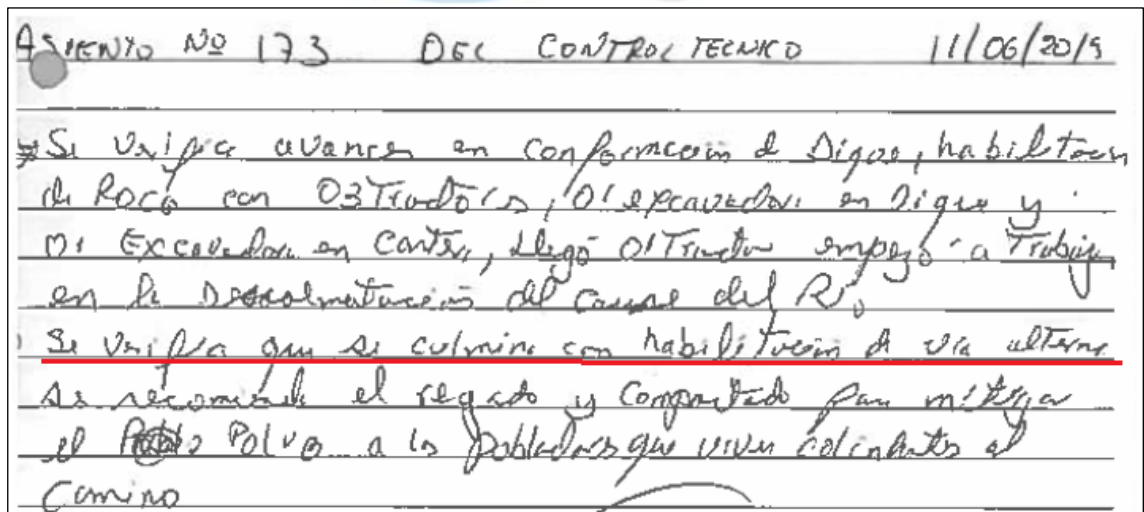 ASIENTO Nº 173 DEL CONTROL TECNICO 11/06/2019
Se verifica avances en conformación de Dique, habilitación
de Roca con 03 Tractores, 01 excavadora en Dique y
01 Excavadora en Cantera, Llegó 01 Tractor empezó a Trabajar
en la Descolmatación del cause del Río
Se verifica que se culmina con habilitación de vía alterna
se recomienda el regado y Compactado para mitigar
el Polvo a los pobladores que viven colindantes al
Camino